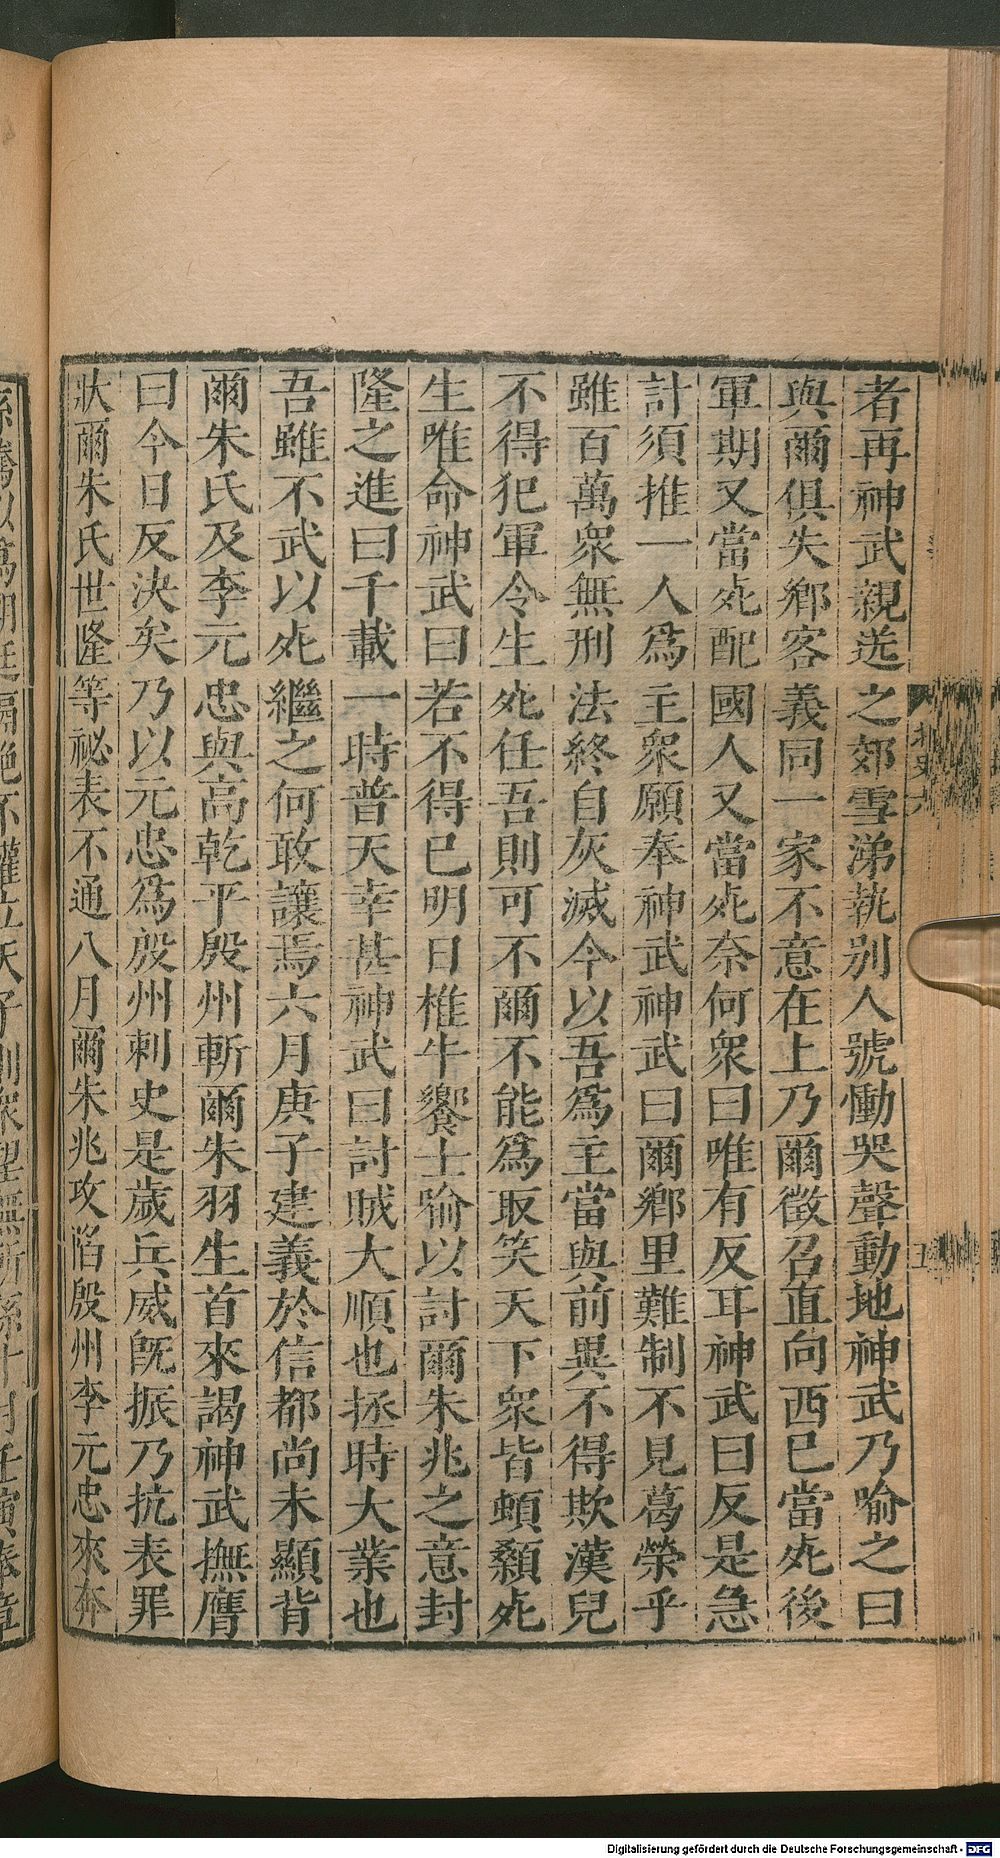 者再神武親送之郊雪涕執別人號慟哭聲動地神武乃喻之曰
與爾俱失鄉客義同一家不意在上乃爾徵召直向西已當死後
軍期又當死配國人又當死奈何衆曰唯有反耳神武曰反是急
計須推一人爲主衆願奉神武神武曰爾鄉里難制不見葛榮乎
雖百萬衆無刑法終自灰滅今以吾爲主當與前異不得欺漢兒
不得犯軍令生死任吾則可不爾不能爲取笑天下衆皆頓顙死
生唯命神武曰若不得已明日椎牛饗士喻以討爾朱兆之意封
隆之進曰千載一時普天幸甚神武曰討賊大順也拯時大業也
吾雖不武以死繼之何敢讓焉六月庚子建義於信都尚未顯背
爾朱氏及李元忠與高乾平殷州斬爾朱羽生首來謁神武撫膺
曰今日反決矣乃以元忠爲殷州刺史是歲兵威旣振乃抗表罪
狀爾朱氏世隆等祕表不通八月爾朱兆攻陷殷州李元忠來奔
Digitalisierung gefördert durch die Deutsche Forschungsgemeinschaft - DFG